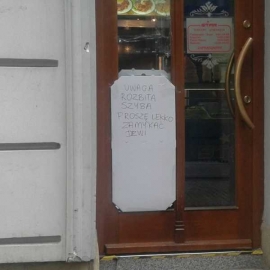 UWAGA
ROZBITA
SZYBA
PROSZĘ LEKKO
ZAMYKAĆ
DRZWI